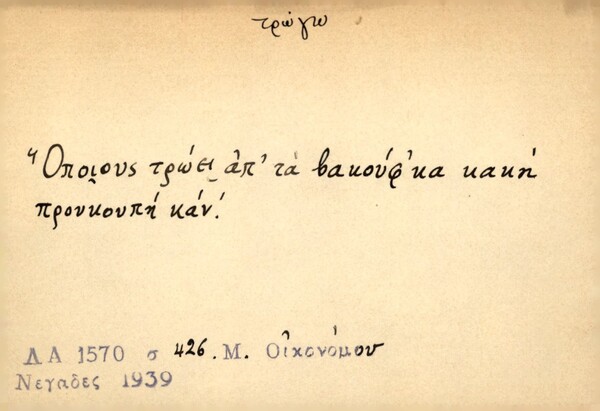 τρώγω
Ὅποι̯ους τρώει̯ ἀπ' τὰ βακούφ'κα κακή
προυκουπή κάν'.
ΛΑ 1570 σ 426. Μ. Οἰκονόμου
Νεγαδες 1939